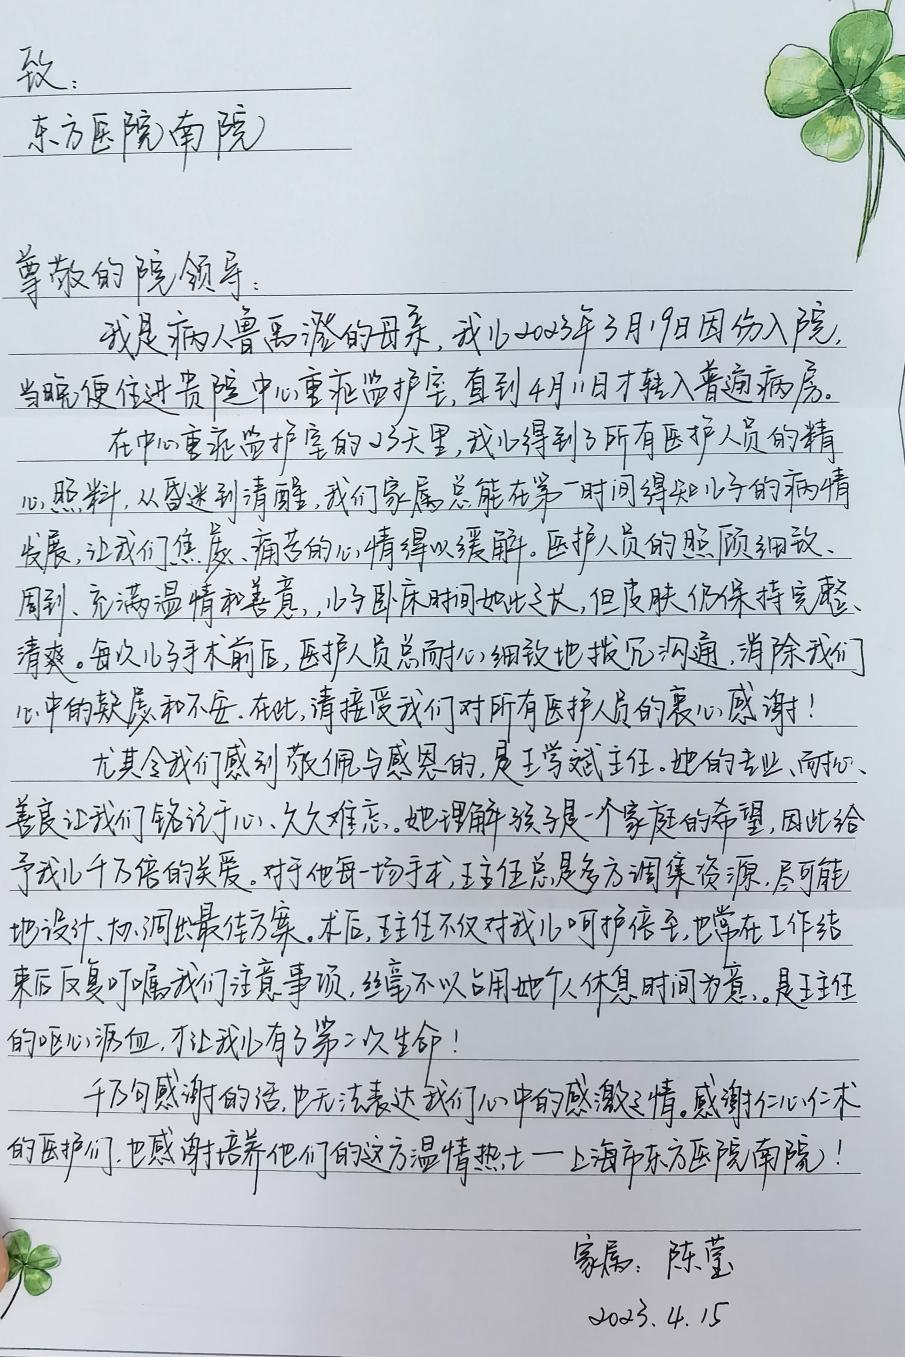 致：
东方医院南院
尊敬的院领导：
我是病人鲁禹澄的母亲，我儿2023年3月19日因伤入院，
当晚便住进贵院中心重症监护室，直到4月11日才转入普通病房。
在中心重症监护室的23天里，我儿得到了所有医护人员的精
心照料，从昏迷到清醒，我们家属总能在第一时间得知儿子的病情
发展，让我们焦虑、痛苦的心情得以缓解。医护人员的照顾细致、
周到、充满温情和善意，儿子卧床时间如此之长，但皮肤仍保持完整、
清爽。每次儿子手术前后，医护人员总耐心细致地拨冗沟通，消除我们
心中的疑虑和不安。在此，请接受我们对所有医护人员的衷心感谢！
尤其令我们感到敬佩与感恩的，是王学斌主任。她的专业、耐心、
善良让我们铭记于心、久久难忘。她理解孩子是一个家庭的希望，因此给
予我儿千万倍的关爱。对于他每一场手术，王主任总是多方调集资源，尽可能
地设计、协调出最佳方案。术后，王主任不仅对我儿呵护倍至，也常在工作结
束后反复叮嘱我们注意事项，丝毫不以占用她个人休息时间为意。是王主任
的呕心沥血，才让我儿有了第二次生命！
千万句感谢的话，也无法表达我们心中的感激之情。感谢仁心仁术
的医护们，也感谢培养他们的这方温情热土—上海市东方医院南院！
家属：陈莹
2023.4.15